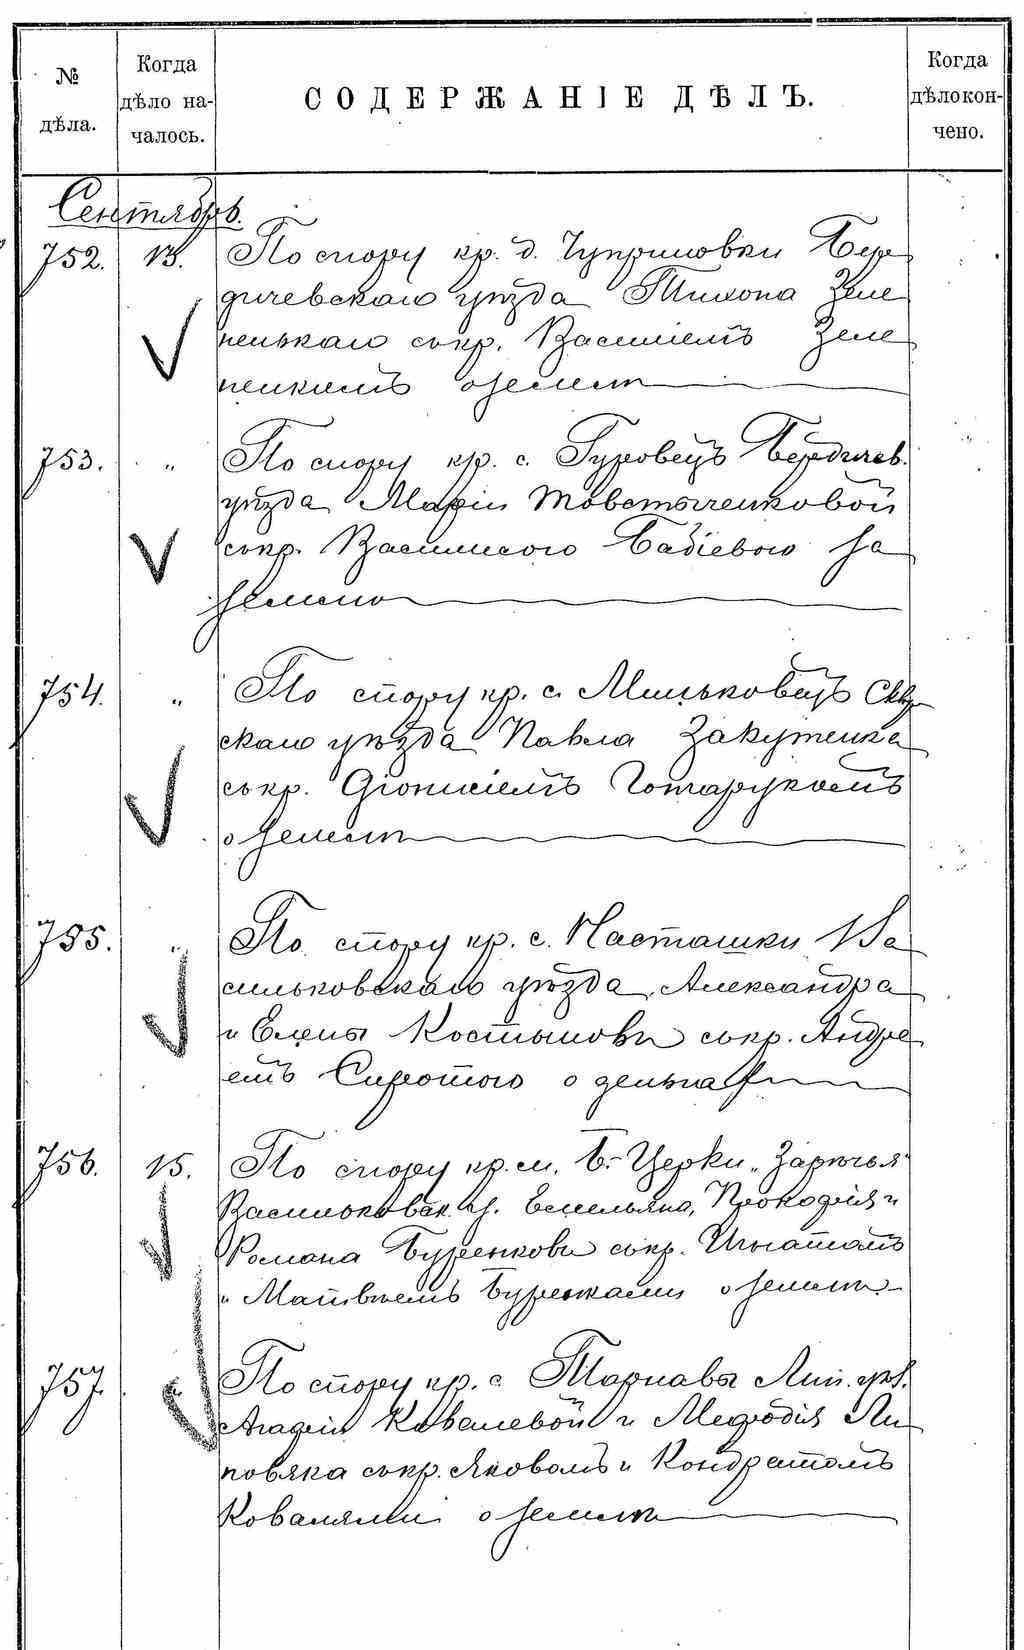 № дѣла.
Когда дѣло на-
чалось.
СОДЕРЖАНІЕ ДѢЛЪ.
Когда дѣло кон-
чено.
Сентябрь.
752. 13. По спору кр. д. Чуприновки Бер
дичевскаго уѣзда Тихона Зеле
ненькаго съ кр. Василіемъ Зеле
ненкимъ о землѣ
753. " По спору кр. с. Гуровецъ Бердичев.
уѣзда Маріи Товстыченковой
съ кр. Василисою Бабіевою за
землю
754. " По спору кр. с. Миньковецъ Сквир
скаго уѣзда Павла Закутенка
съ кр. Діонисіемъ Гонтарукомъ
о землѣ
755. " По спору кр. с. Насташки Ва
сильковскаго уѣзда Александра
и Елены съ кр. Андре
емъ Сиротою о деньгах
756. 15. По спору кр. м. Б.-Церкви "Зарѣчья"
Васильковск. у. Емельяна, Прокофія и
Романа Буренкови съ кр. Игнатомъ
и Матвѣемъ Буренками о землѣ
757. " По спору кр. с. Тарнавы Лип. уѣз.
Агафіи Ковалевой и Мефодія Ли
повяка съ кр. Яковомъ и Кондратомъ
Ковалями о землѣ